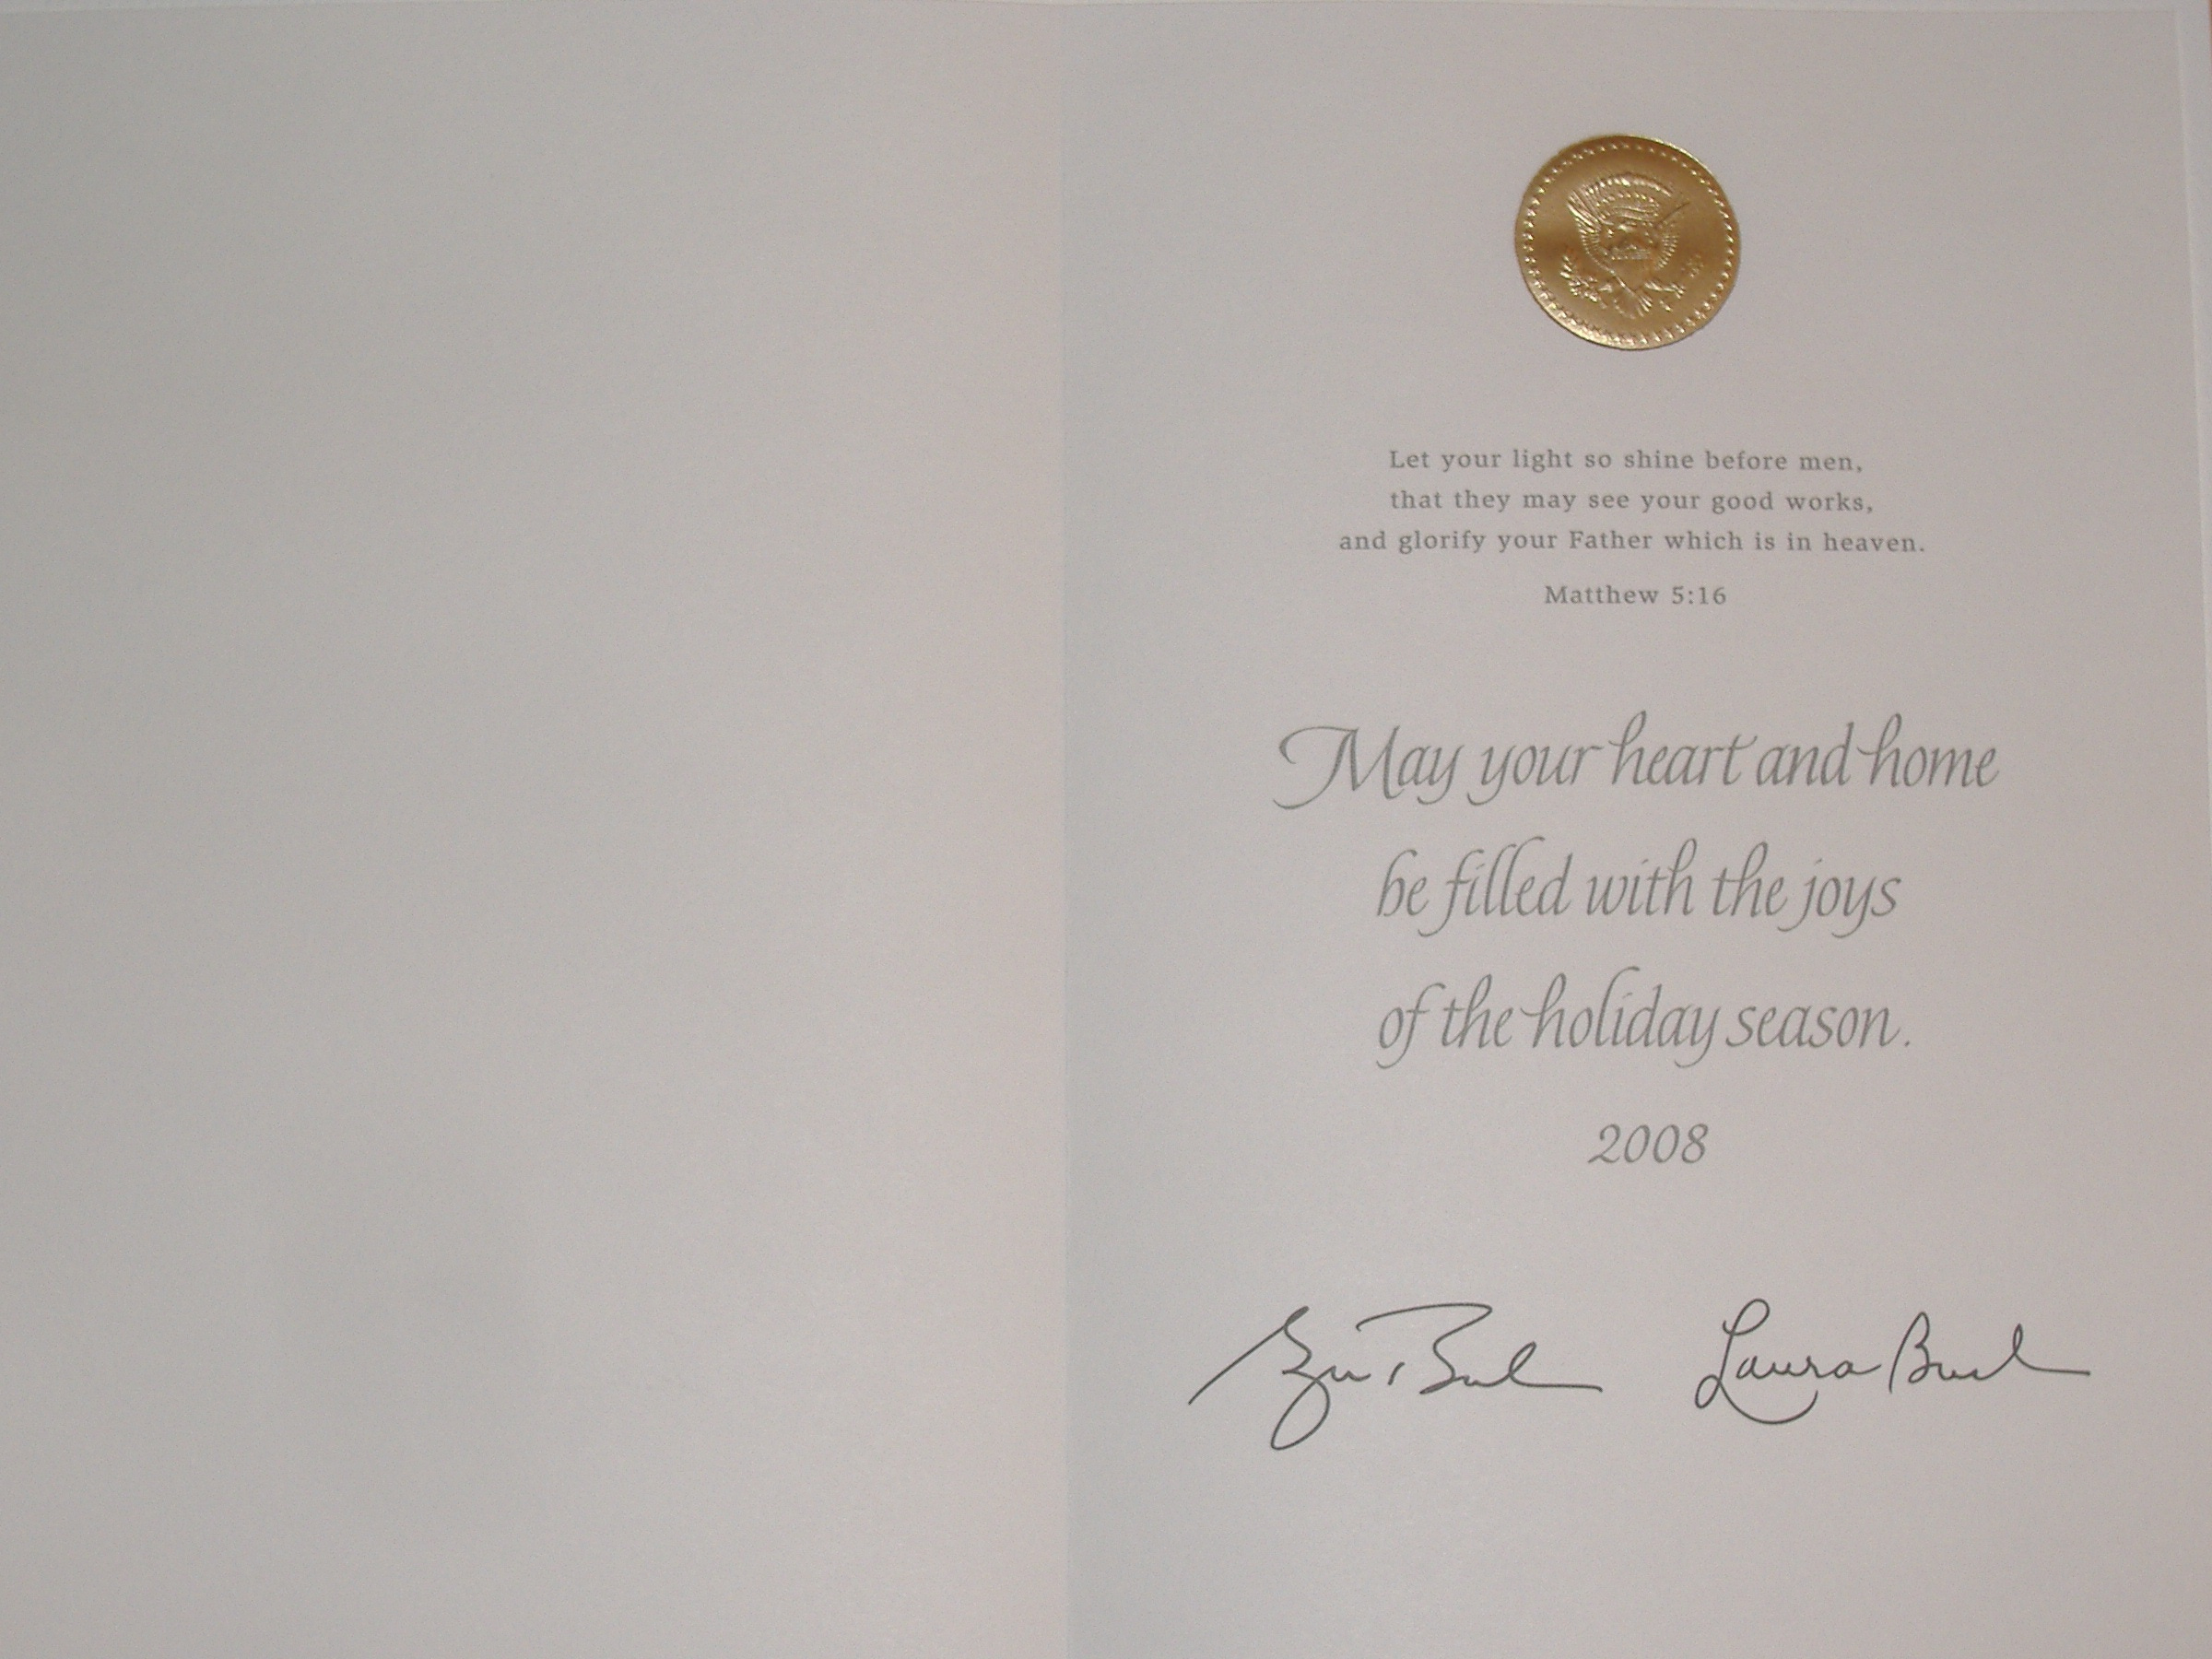 Let your light so shine before men,
that they may see your good works,
and glorify your Father which is in heaven.
Matthew 5:16
May your heart and home
be filled with the joys
of the holiday season.
2008
Laura Bush